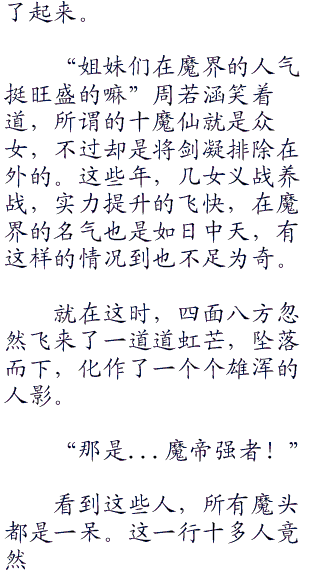 了起来。
“姐妹们在魔界的人气
挺旺盛的嘛”周若涵笑着
道，所谓的十魔仙就是众
女，不过却是将剑凝排除在
外的。这些年，几女义战养
战，实力提升的飞快，在魔
界的名气也是如日中天，有
这样的情况到也不足为奇。
就在这时，四面八方忽
然飞来了一道道虹芒，坠落
而下，化作了一个个雄浑的
人影。
“那是...魔帝强者！”
看到这些人，所有魔头
都是一呆。这一行十多人竟
然